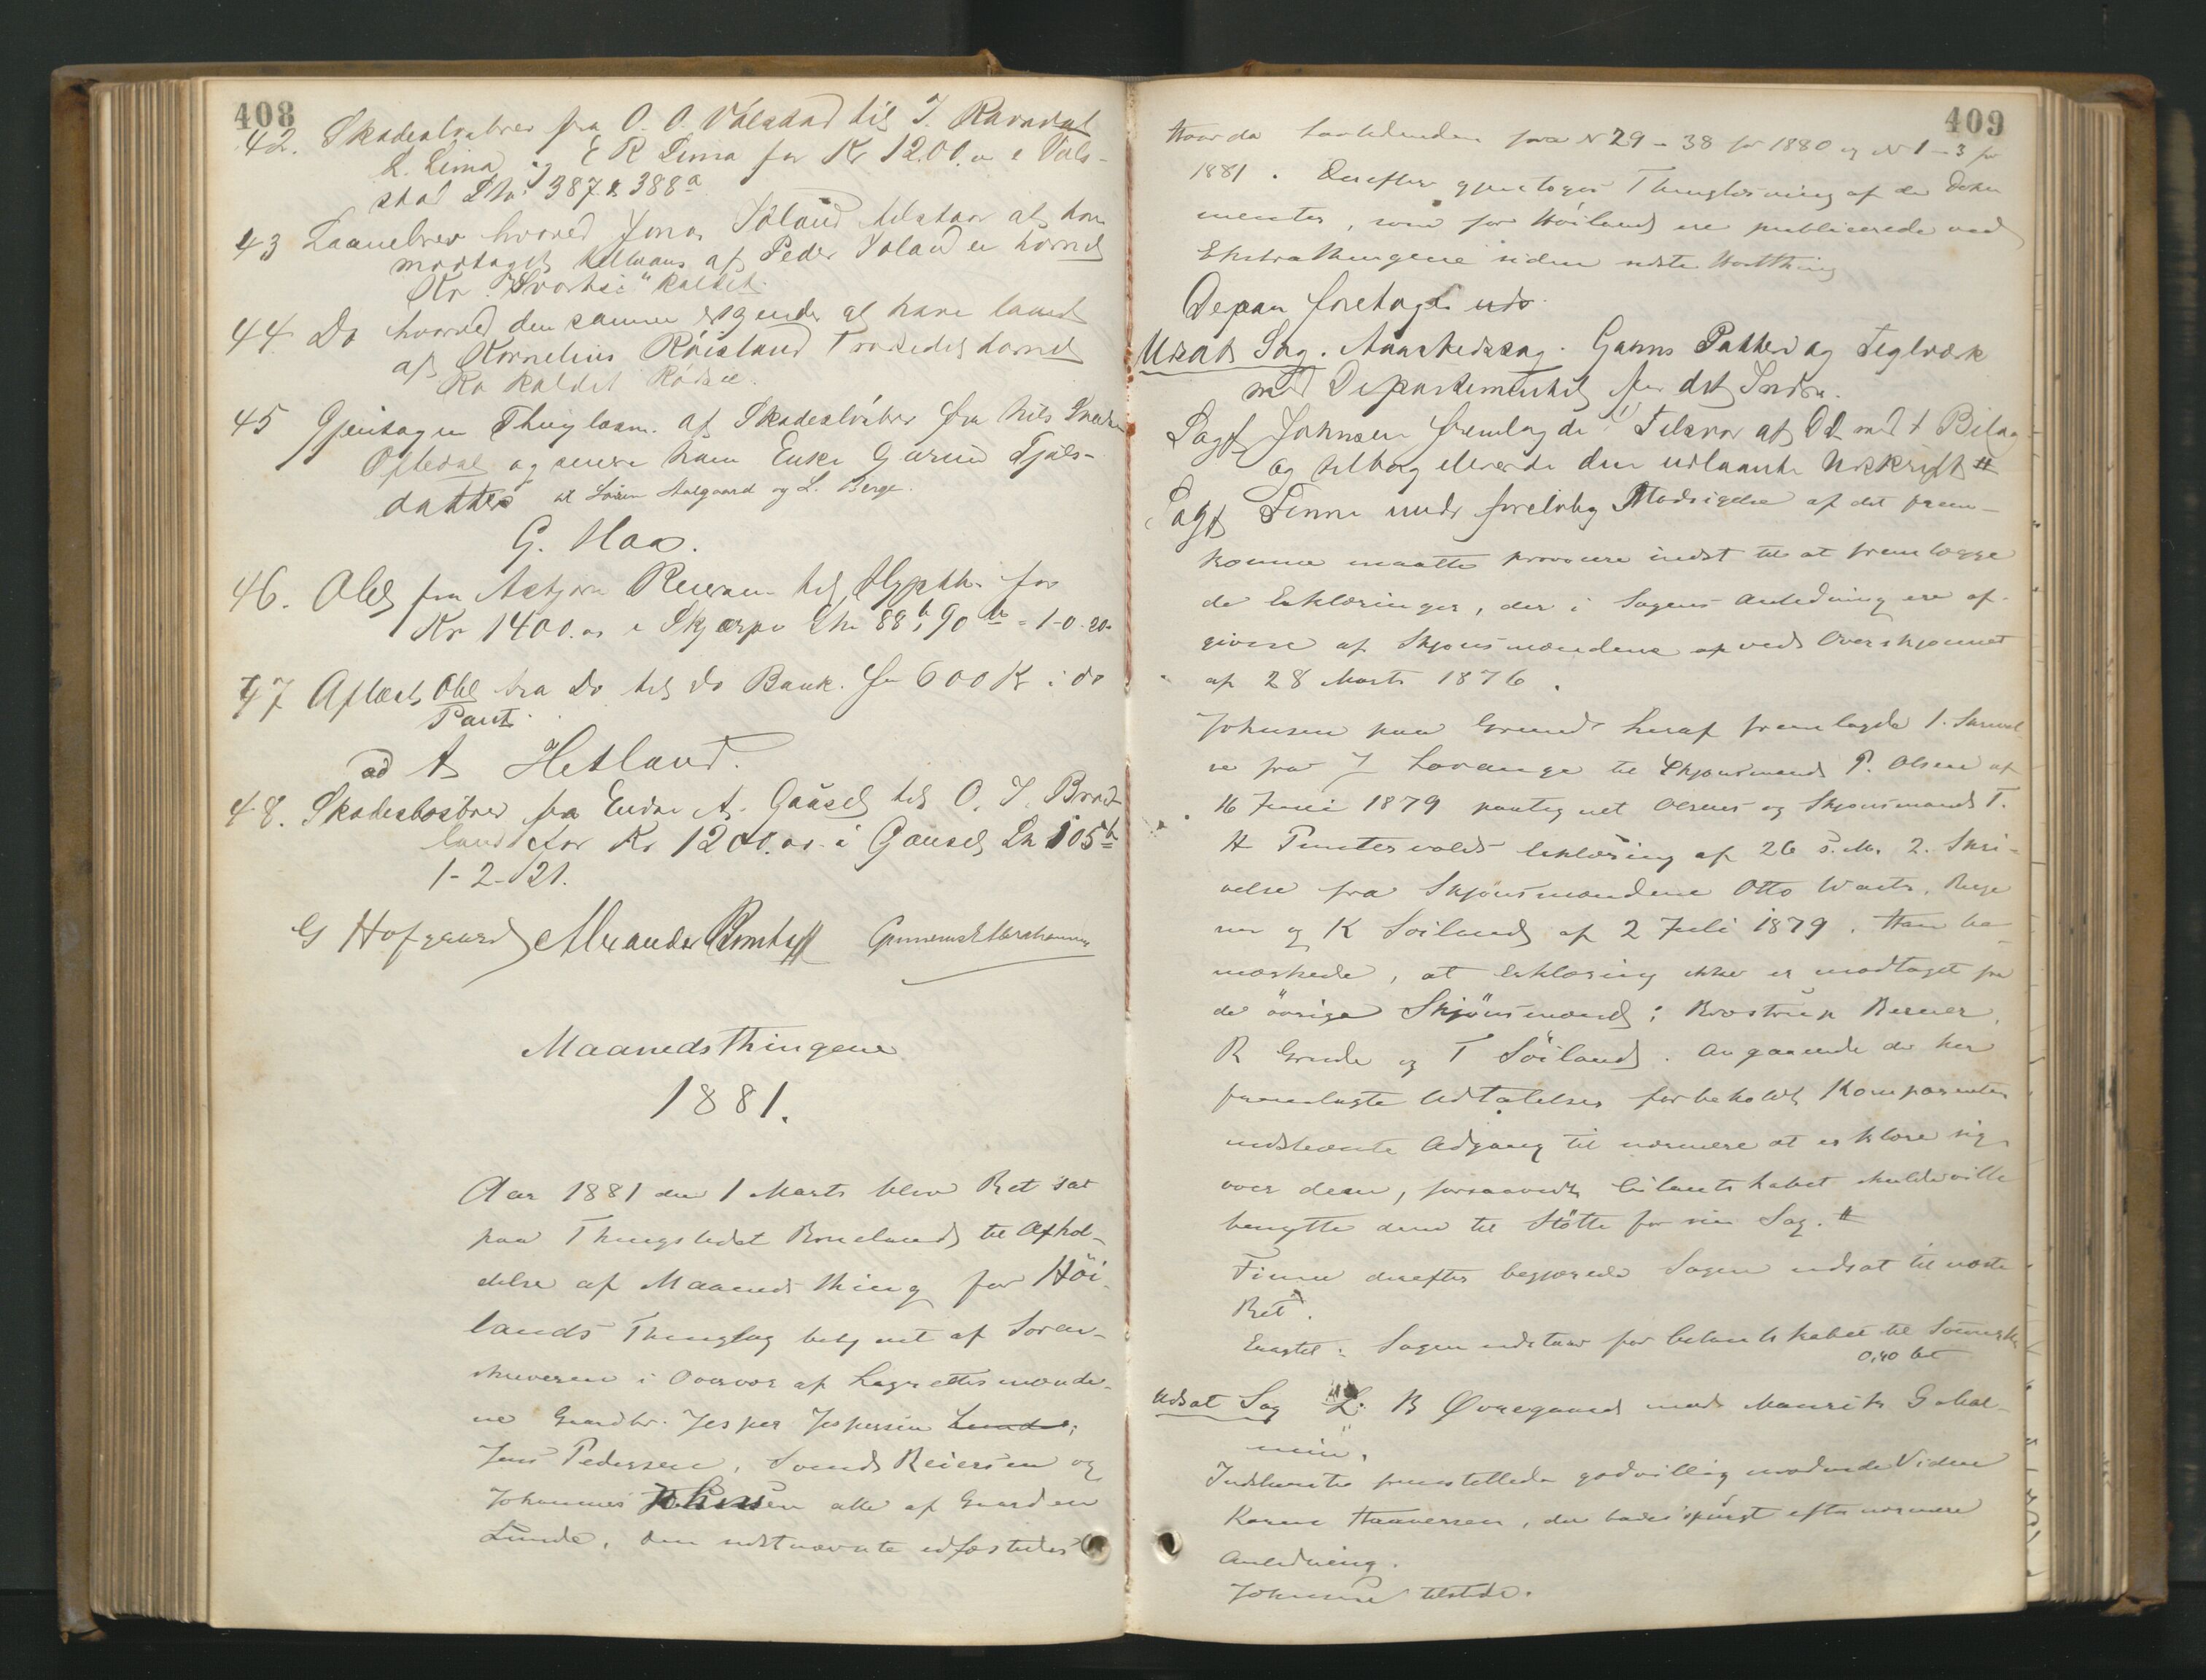 408
42. Skadeslosbrev fra O. O. Válestad til T. Ravndal
L. Lima og E R Lima for Kr 1200.00 i Vals-
stad LNr 387 & 388a
43 Laanebrev hvorved Jonas Söland tilstaar at han
modtaget tillaans af Peder Söland en hornet
Ko "Svartsi" kaldet.
44. Do hvorved den samme erkjender at have laant
af Kornelius Röisland hornet
Ko kaldet Rödsei.
45 Gjentagen Thinglæsn. af Skadeslösbrev fra Nils
Oftedal og senere hans Enke Gurine Tjøls-
datter til Sören Aalgaard og L. Berge.
G. Haa.
46. Obl fra Asbjörn Reiersen til Hypthb. for
Kr 1400.00 i Skjærpe LNr 88b, 90b = 1-0-20
47 Aflæst Obl fra Do til do Bank. for 600 Kr i do
Pant
ad A Hetland.
48. Skadeslosbrev fra Endre A. Gausel til O. T. Braut-
land for Kr 1200.00 i Gausel LN 105b
1-2-21.
G Hofgaard Alexander Gunnerius Abrahamsen
Maanedsthingene
1881.
Aar 1881 den 1 Marts blev Ret sat
paa Thingstedet Brueland til Afhol-
delse af Maanedsthing for Höi-
lands Thinglag betjent af Soren-
skriveren i Overvær af Lagrettesmænde-
ne Gaardbr. Jesper Jespersen Lunde;
Jens Pedersen, Svend Reiersen og
Johannes alle af Gaarden
Lunde, den sidstnævnte edfæstedes
409
Hvorda Lovtidenden fra N 29 - 38 for 1880 og N 1-3 for
1881. Derefter gjentoges Thinglæsning af de Doku
menter, som for Höiland ere publicerede ved
Ekstrathingene siden sidste Høstthing
Depaa foretages uds
Udsat Sag. Aaastedssag. Ganns Potteri og Teglværk
mod Departementet for det Indre.
Sagf Johnsen fremlagde Tilsvar af DD med 1 Bilag
og tilbagleverede den udlaante Udskrift #
Sagf Finne under forelöbig Modsigelse af det frem-
komne maatte provocere indst til at fremlægge
de Erklæringer, der i Sagens Anledning ere af-
givne af Skjönsmændene ved Overskjønnet
af 28 Marts 1876.
Johnsen paa Grund heraf fremlagde 1. Skrivel
se fra J Lovange til Skjönsmand P. Olsen af
16 Juni 1879 paategnet Olsens og Skjönsmand T.
H Pintervolds Erklæring af 26 s. M. 2. Skri-
velse fra Skjönsmændene Otto Waats, Rege
ner og K Soiland af 2 Juli 1879. Han be-
mærkede, at Erklæring ikke er modtaget fra
de övrige Skjönsmænd: Broström Berner,
R Grude og T Söiland. Angaaende de her
fremlagte Udtalelser forbeholdt Komparenten
indstævnte Adgang til nærmere at erklære sig
over dem, forsaavidt Citantskabet skulde ville
benytte dem til Stötte for sin Sag. #
Finne derefter begjærede Sagen udsat til næste
Ret.
Eragtet: Sagen udstaar for Citantskabet til Sommerth.
0,40 bet
Udsat Sag L. B Øvregaard mod Maurits G Mal-
min.
Indstævnte fremstillede godvillig mødende Vidne
Karen Haaversen, der blev spurgt efter nærmere
Anledning.
Johnsen tilstede.